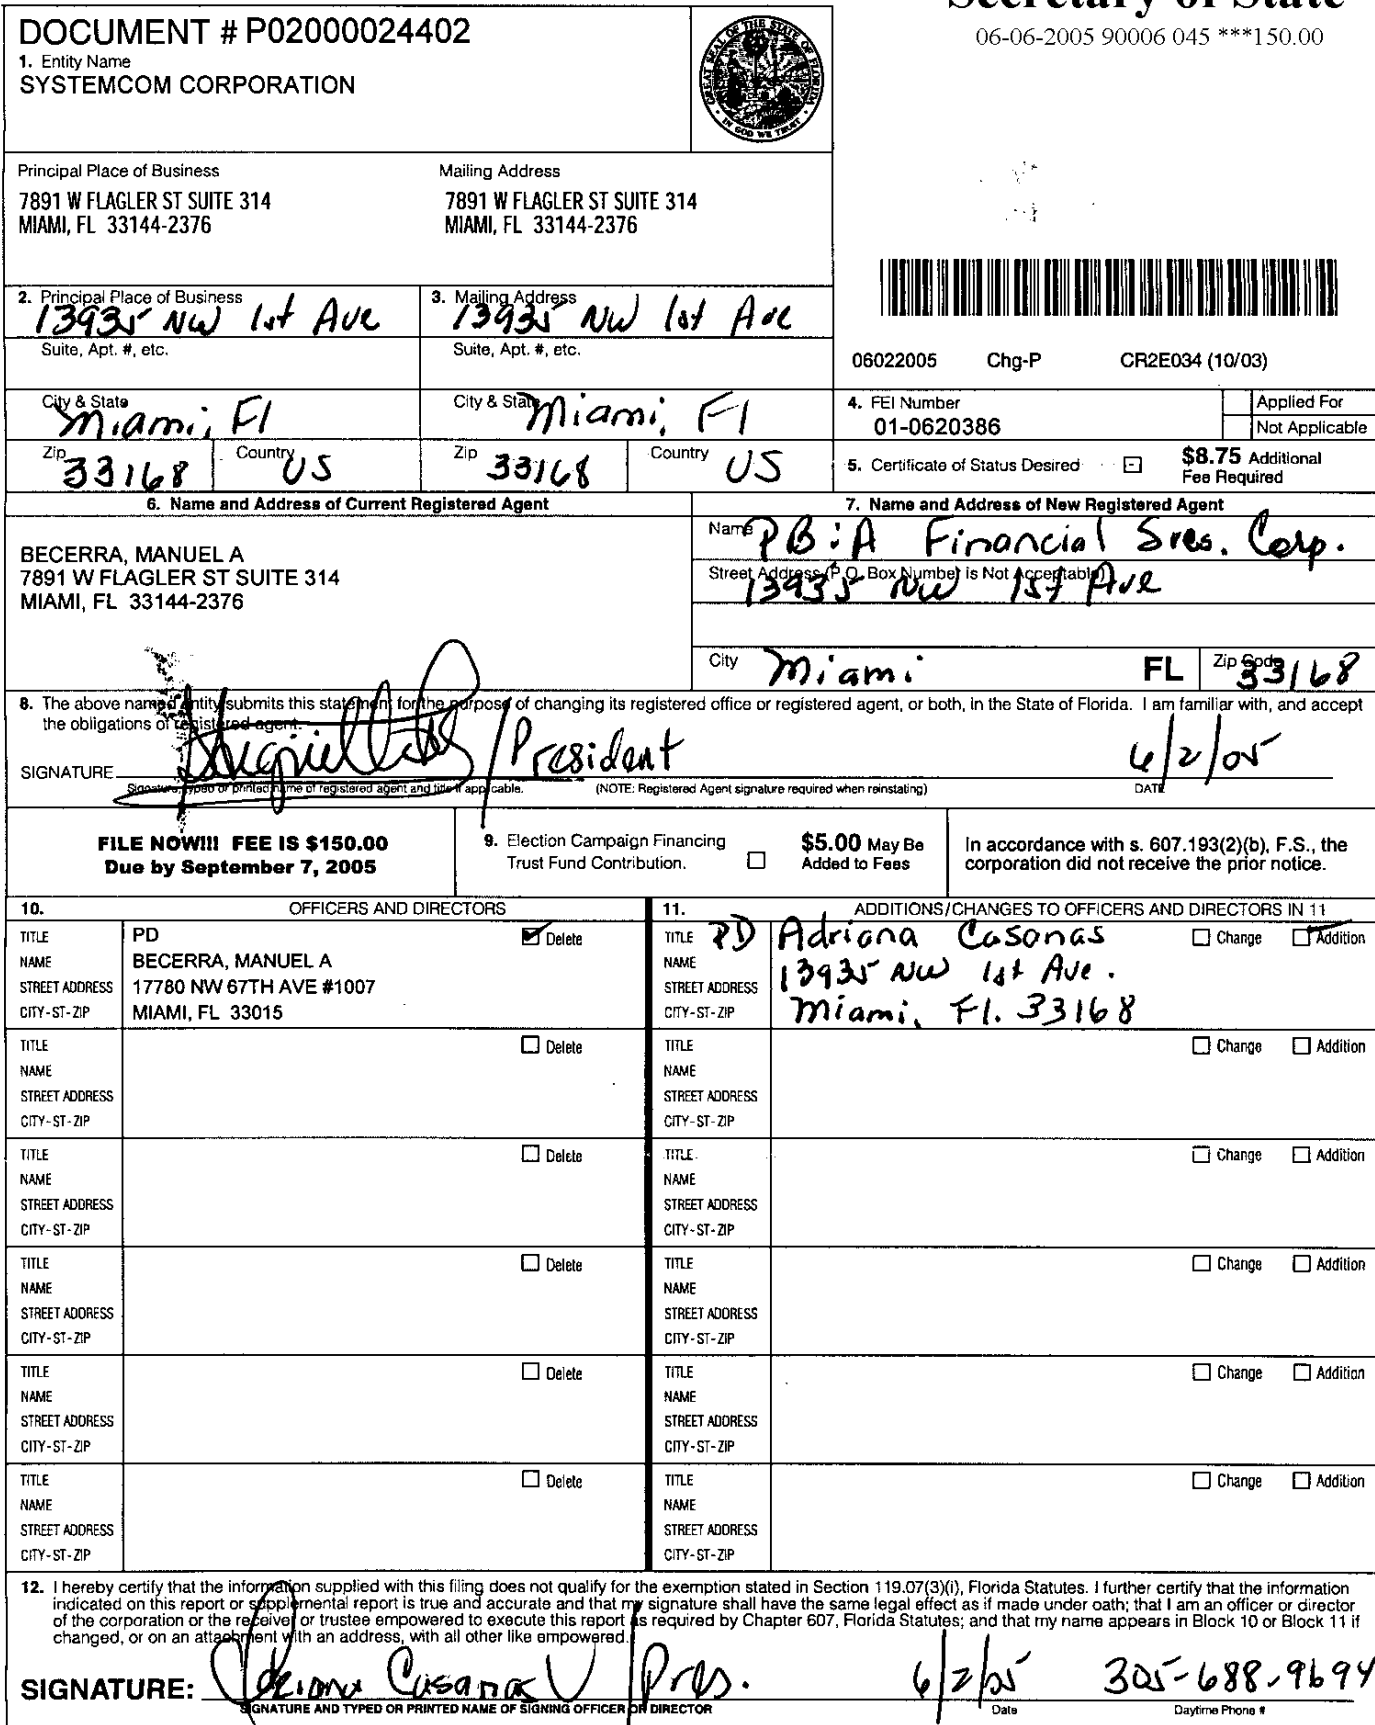 Secretary of State
06-06-2005 90006 045 ***150.00
DOCUMENT # P02000024402
1. Entity Name
SYSTEMCOM CORPORATION
GREAT SEAL OF THE STATE OF FLORIDA
IN GOD WE TRUST
Principal Place of Business
7891 W FLAGLER ST SUITE 314
MIAMI, FL 33144-2376
Mailing Address
7891 W FLAGLER ST SUITE 314
MIAMI, FL 33144-2376
2. Principal Place of Business
13935 NW 1st Ave
Suite, Apt. #, etc.
City & State
Miami, Fl
Zip 33168
Country US
3. Mailing Address
13935 NW 1st Ave
Suite, Apt. #, etc.
City & State
Miami, Fl
Zip 33168
Country US
06022005 Chg-P CR2E034 (10/03)
4. FEI Number
01-0620386
Applied For
Not Applicable
5. Certificate of Status Desired
$8.75 Additional
Fee Required
6. Name and Address of Current Registered Agent
BECERRA, MANUEL A
7891 W FLAGLER ST SUITE 314
MIAMI, FL 33144-2376
7. Name and Address of New Registered Agent
Name PB:A Financial Srcs. Corp.
Street Address (P.O. Box Number is Not Acceptable)
13935 NW 1st Ave
City Miami FL Zip Code 33168
8. The above named entity submits this statement for the purpose of changing its registered office or registered agent, or both, in the State of Florida. I am familiar with, and accept
the obligations of registered agent.
SIGNATURE / President 6/2/05
Signature, typed or printed name of registered agent and title if applicable. (NOTE: Registered Agent signature required when reinstating) DATE
FILE NOW!!! FEE IS $150.00
Due by September 7, 2005
9. Election Campaign Financing
Trust Fund Contribution.
$5.00 May Be
Added to Fees
In accordance with s. 607.193(2)(b), F.S., the
corporation did not receive the prior notice.
10. OFFICERS AND DIRECTORS
TITLE PD Delete
NAME BECERRA, MANUEL A
STREET ADDRESS 17780 NW 67TH AVE #1007
CITY-ST-ZIP MIAMI, FL 33015
TITLE Delete
NAME
STREET ADDRESS
CITY-ST-ZIP
TITLE Delete
NAME
STREET ADDRESS
CITY-ST-ZIP
TITLE Delete
NAME
STREET ADDRESS
CITY-ST-ZIP
TITLE Delete
NAME
STREET ADDRESS
CITY-ST-ZIP
TITLE Delete
NAME
STREET ADDRESS
CITY-ST-ZIP
11. ADDITIONS/CHANGES TO OFFICERS AND DIRECTORS IN 11
TITLE PD Adriana Casanas Change Addition
NAME
STREET ADDRESS 13935 NW 1st Ave.
CITY-ST-ZIP Miami, Fl. 33168
TITLE Change Addition
NAME
STREET ADDRESS
CITY-ST-ZIP
TITLE Change Addition
NAME
STREET ADDRESS
CITY-ST-ZIP
TITLE Change Addition
NAME
STREET ADDRESS
CITY-ST-ZIP
TITLE Change Addition
NAME
STREET ADDRESS
CITY-ST-ZIP
TITLE Change Addition
NAME
STREET ADDRESS
CITY-ST-ZIP
12. I hereby certify that the information supplied with this filing does not qualify for the exemption stated in Section 119.07(3)(i), Florida Statutes. I further certify that the information
indicated on this report or supplemental report is true and accurate and that my signature shall have the same legal effect as if made under oath; that I am an officer or director
of the corporation or the receiver or trustee empowered to execute this report as required by Chapter 607, Florida Statutes; and that my name appears in Block 10 or Block 11 if
changed, or on an attachment with an address, with all other like empowered.
SIGNATURE: Adriana Casanas / Pres. 6/2/05 305-688-9694
SIGNATURE AND TYPED OR PRINTED NAME OF SIGNING OFFICER OR DIRECTOR Date Daytime Phone #